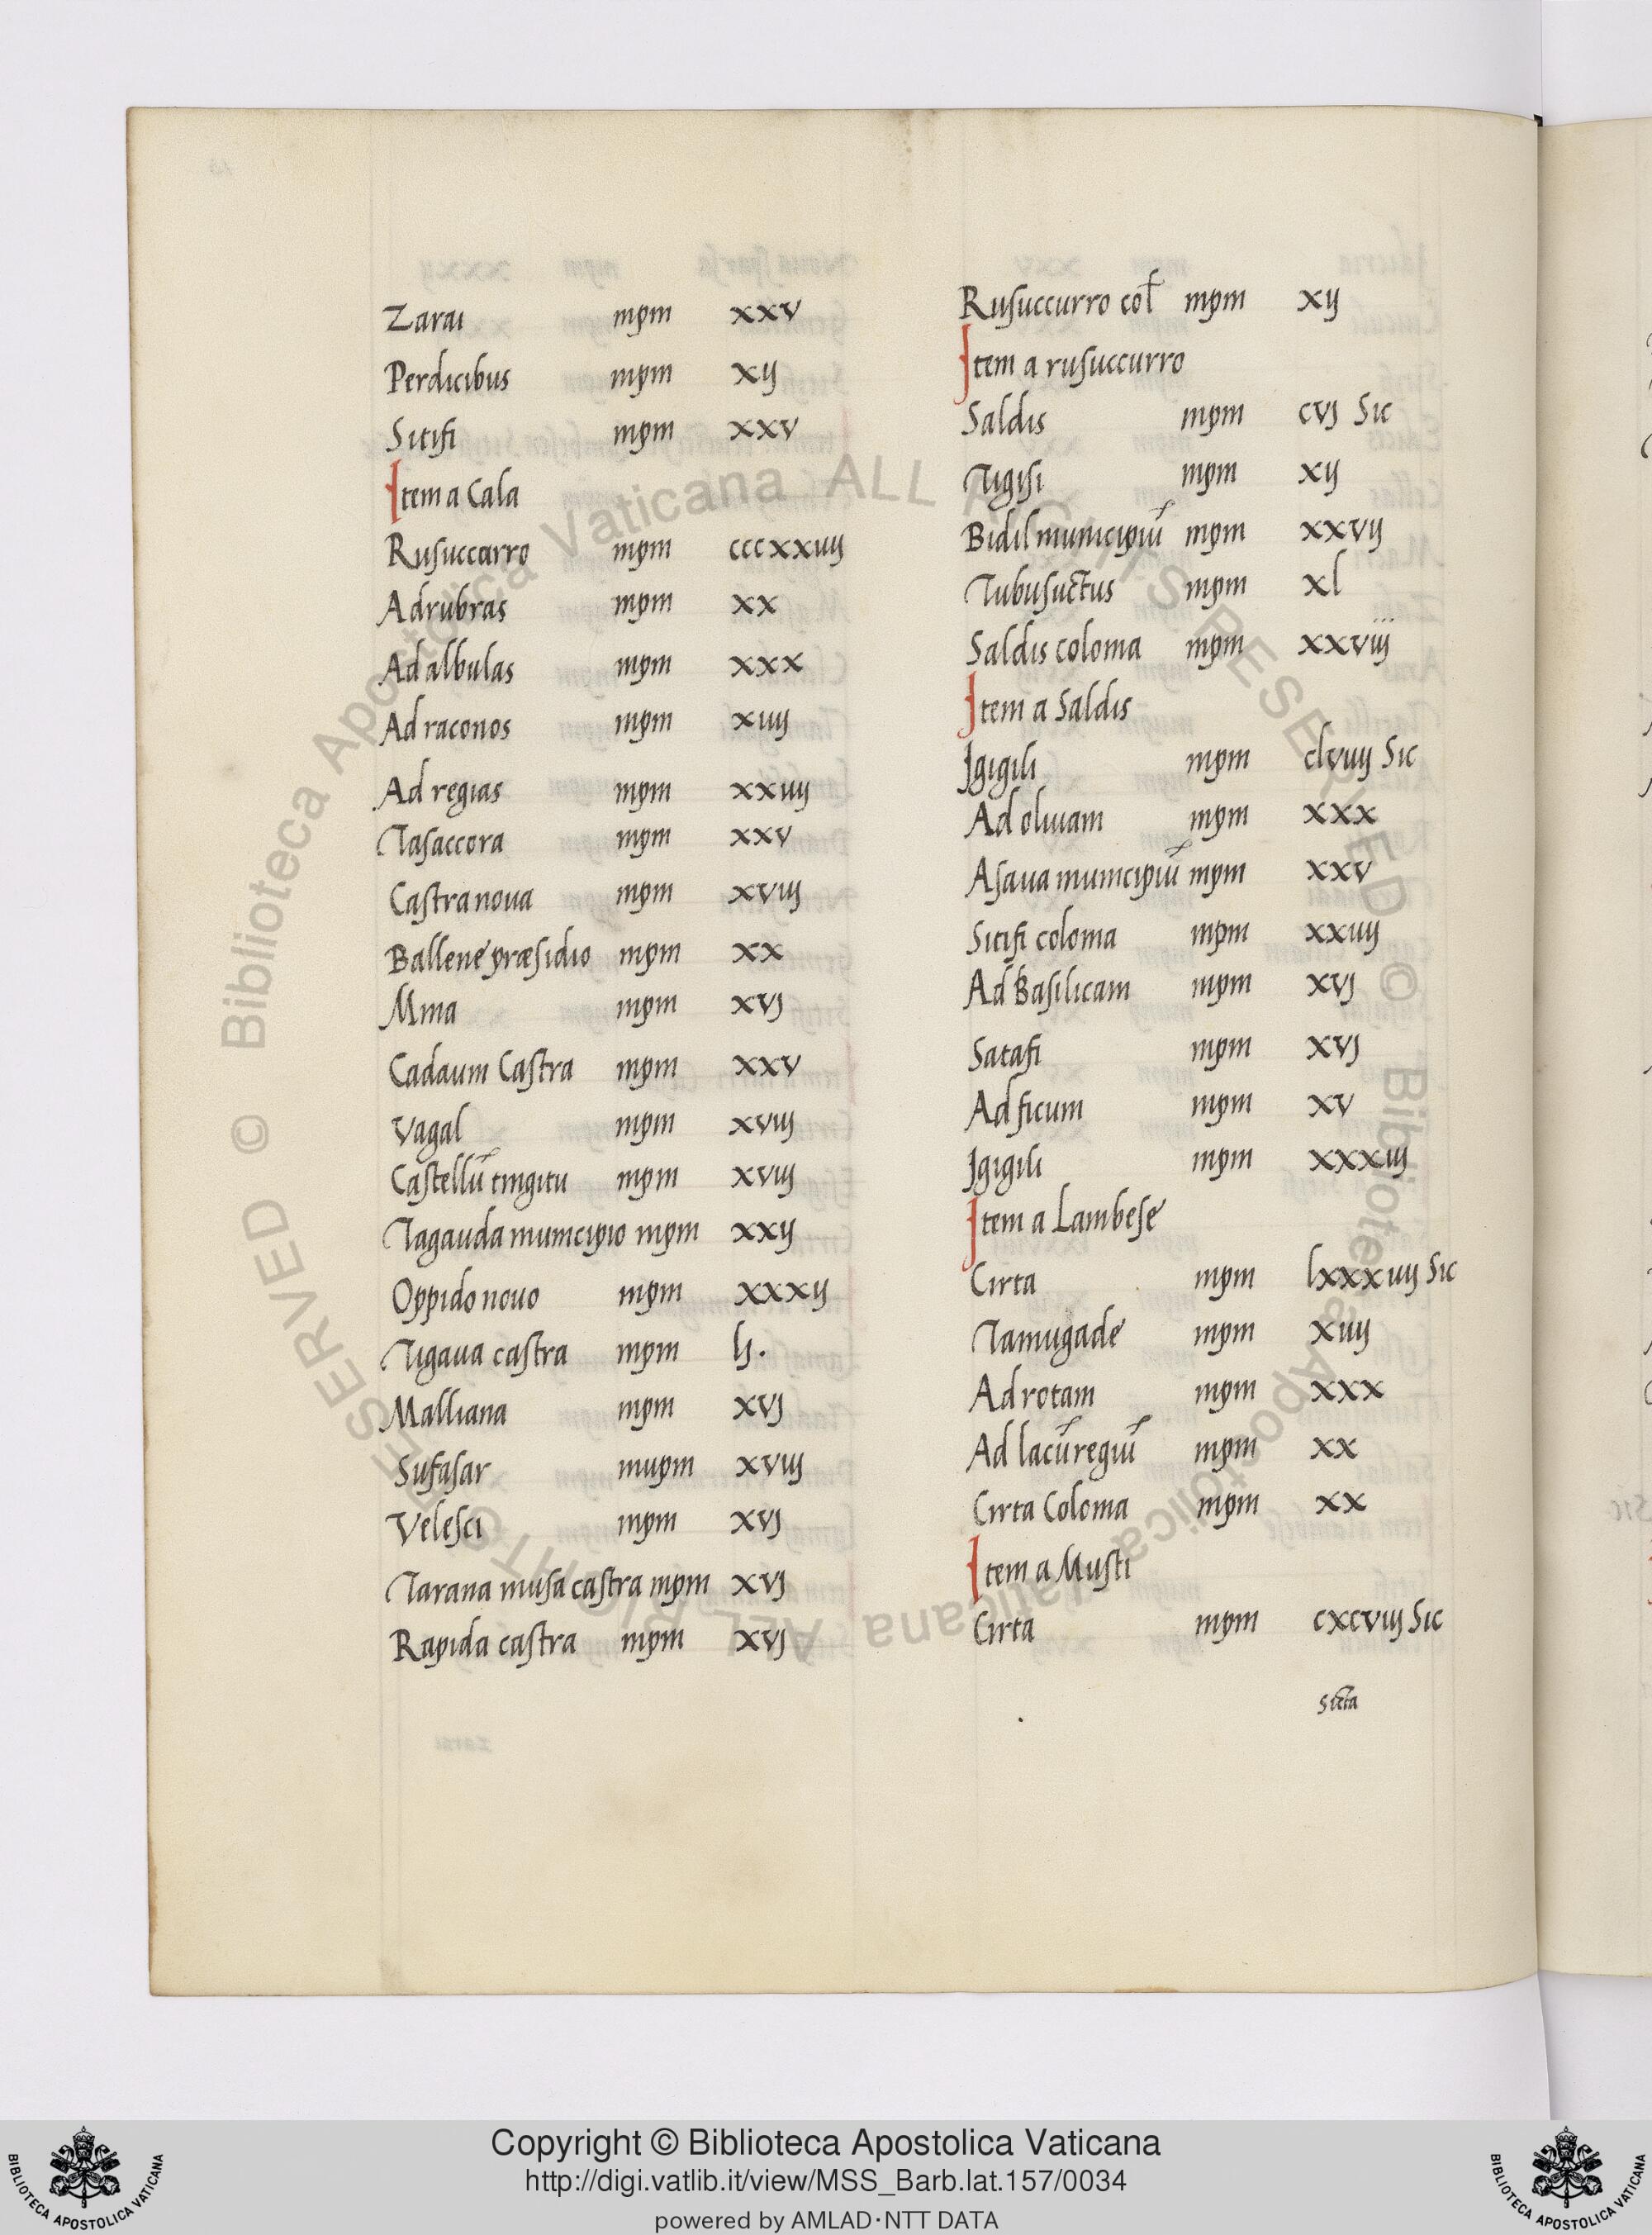 Zarai mpm xxv
Perdicibus mpm xij
Sitifi mpm xxv
Item a Cala
Rusuccarro mpm cccxxiiij
Ad rubras mpm xx
Ad albulas mpm xxx
Ad raconos mpm xiiij
Ad regias mpm xxiiij
Tasaccora mpm xxv
Castra noua mpm xviij
Ballene præsidio mpm xx
Mina mpm xvj
Cadaum Castra mpm xxv
Vagal mpm xviij
Castellū tingitii mpm xviij
Tagauda municipio mpm xxij
Oppido nouo mpm xxxij
Tigaua castra mpm lj.
Malliana mpm xvj
Sufasar mupm xviij
Velesci mpm xvj
Tarana musa castra mpm xvj
Rapida castra mpm xvj
Rusuccurro col̄ mpm xij
Item a rusuccurro
Saldis mpm cvj Sic
Tigisi mpm xij
Bidil municipiū mpm xxvij
Tubusuctus mpm xl
Saldis colonia mpm xxviij
Item a Saldis
Igigili mpm clviiij Sic
Ad oliuam mpm xxx
Asaua municipiū mpm xxv
Sitifi colonia mpm xxiiij
Ad Basilicam mpm xvj
Satafi mpm xvj
Ad ficum mpm xv
Igigili mpm xxxiij
Item a Lambese
Cirta mpm lxxxiiij Sic
Tamugade mpm xiiij
Ad rotam mpm xxx
Ad lacū regiū mpm xx
Cirta Colonia mpm xx
Item a Musti
Cirta mpm cxcviij Sic
Copyright © Biblioteca Apostolica Vaticana
http://digi.vatlib.it/view/MSS_Barb.lat.157/0034
powered by AMLAD·NTT DATA
BIBLIOTECA APOSTOLICA VATICANA
BIBLIOTECA APOSTOLICA VATICANA
© Biblioteca Apostolica Vaticana ALL RIGHTS RESERVED © Biblioteca Apostolica Vaticana ALL RIGHTS RESERVED